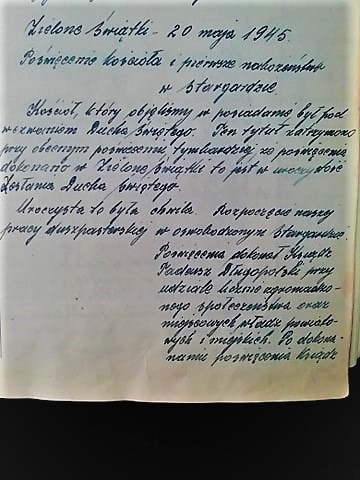 Zielone Świątki - 20 maja 1945.
Poświęcenie kościoła i pierwsze nabożeństwo
w Stargardzie.
Kościół, który objęliśmy w posiadanie był pod
wezwaniem Ducha Świętego. Ten tytuł zatrzymano
przy obecnym poświęceniu tymbardziej że poświęcenia
dokonano w Zielone Świątki to jest w uroczystość
Zesłania Ducha Świętego.
Uroczysta to była chwila. Rozpoczęcie naszej
pracy duszpasterskiej w oswobodzonym Stargardzie.
Poświęcenia dokonał Ksiądz
Tadeusz Długopolski przy
udziale licznie zgromadzo-
nego społeczeństwa oraz
miejscowych władz powiato-
wych i miejskich. Po doko-
naniu poświęcenia Ksiądz